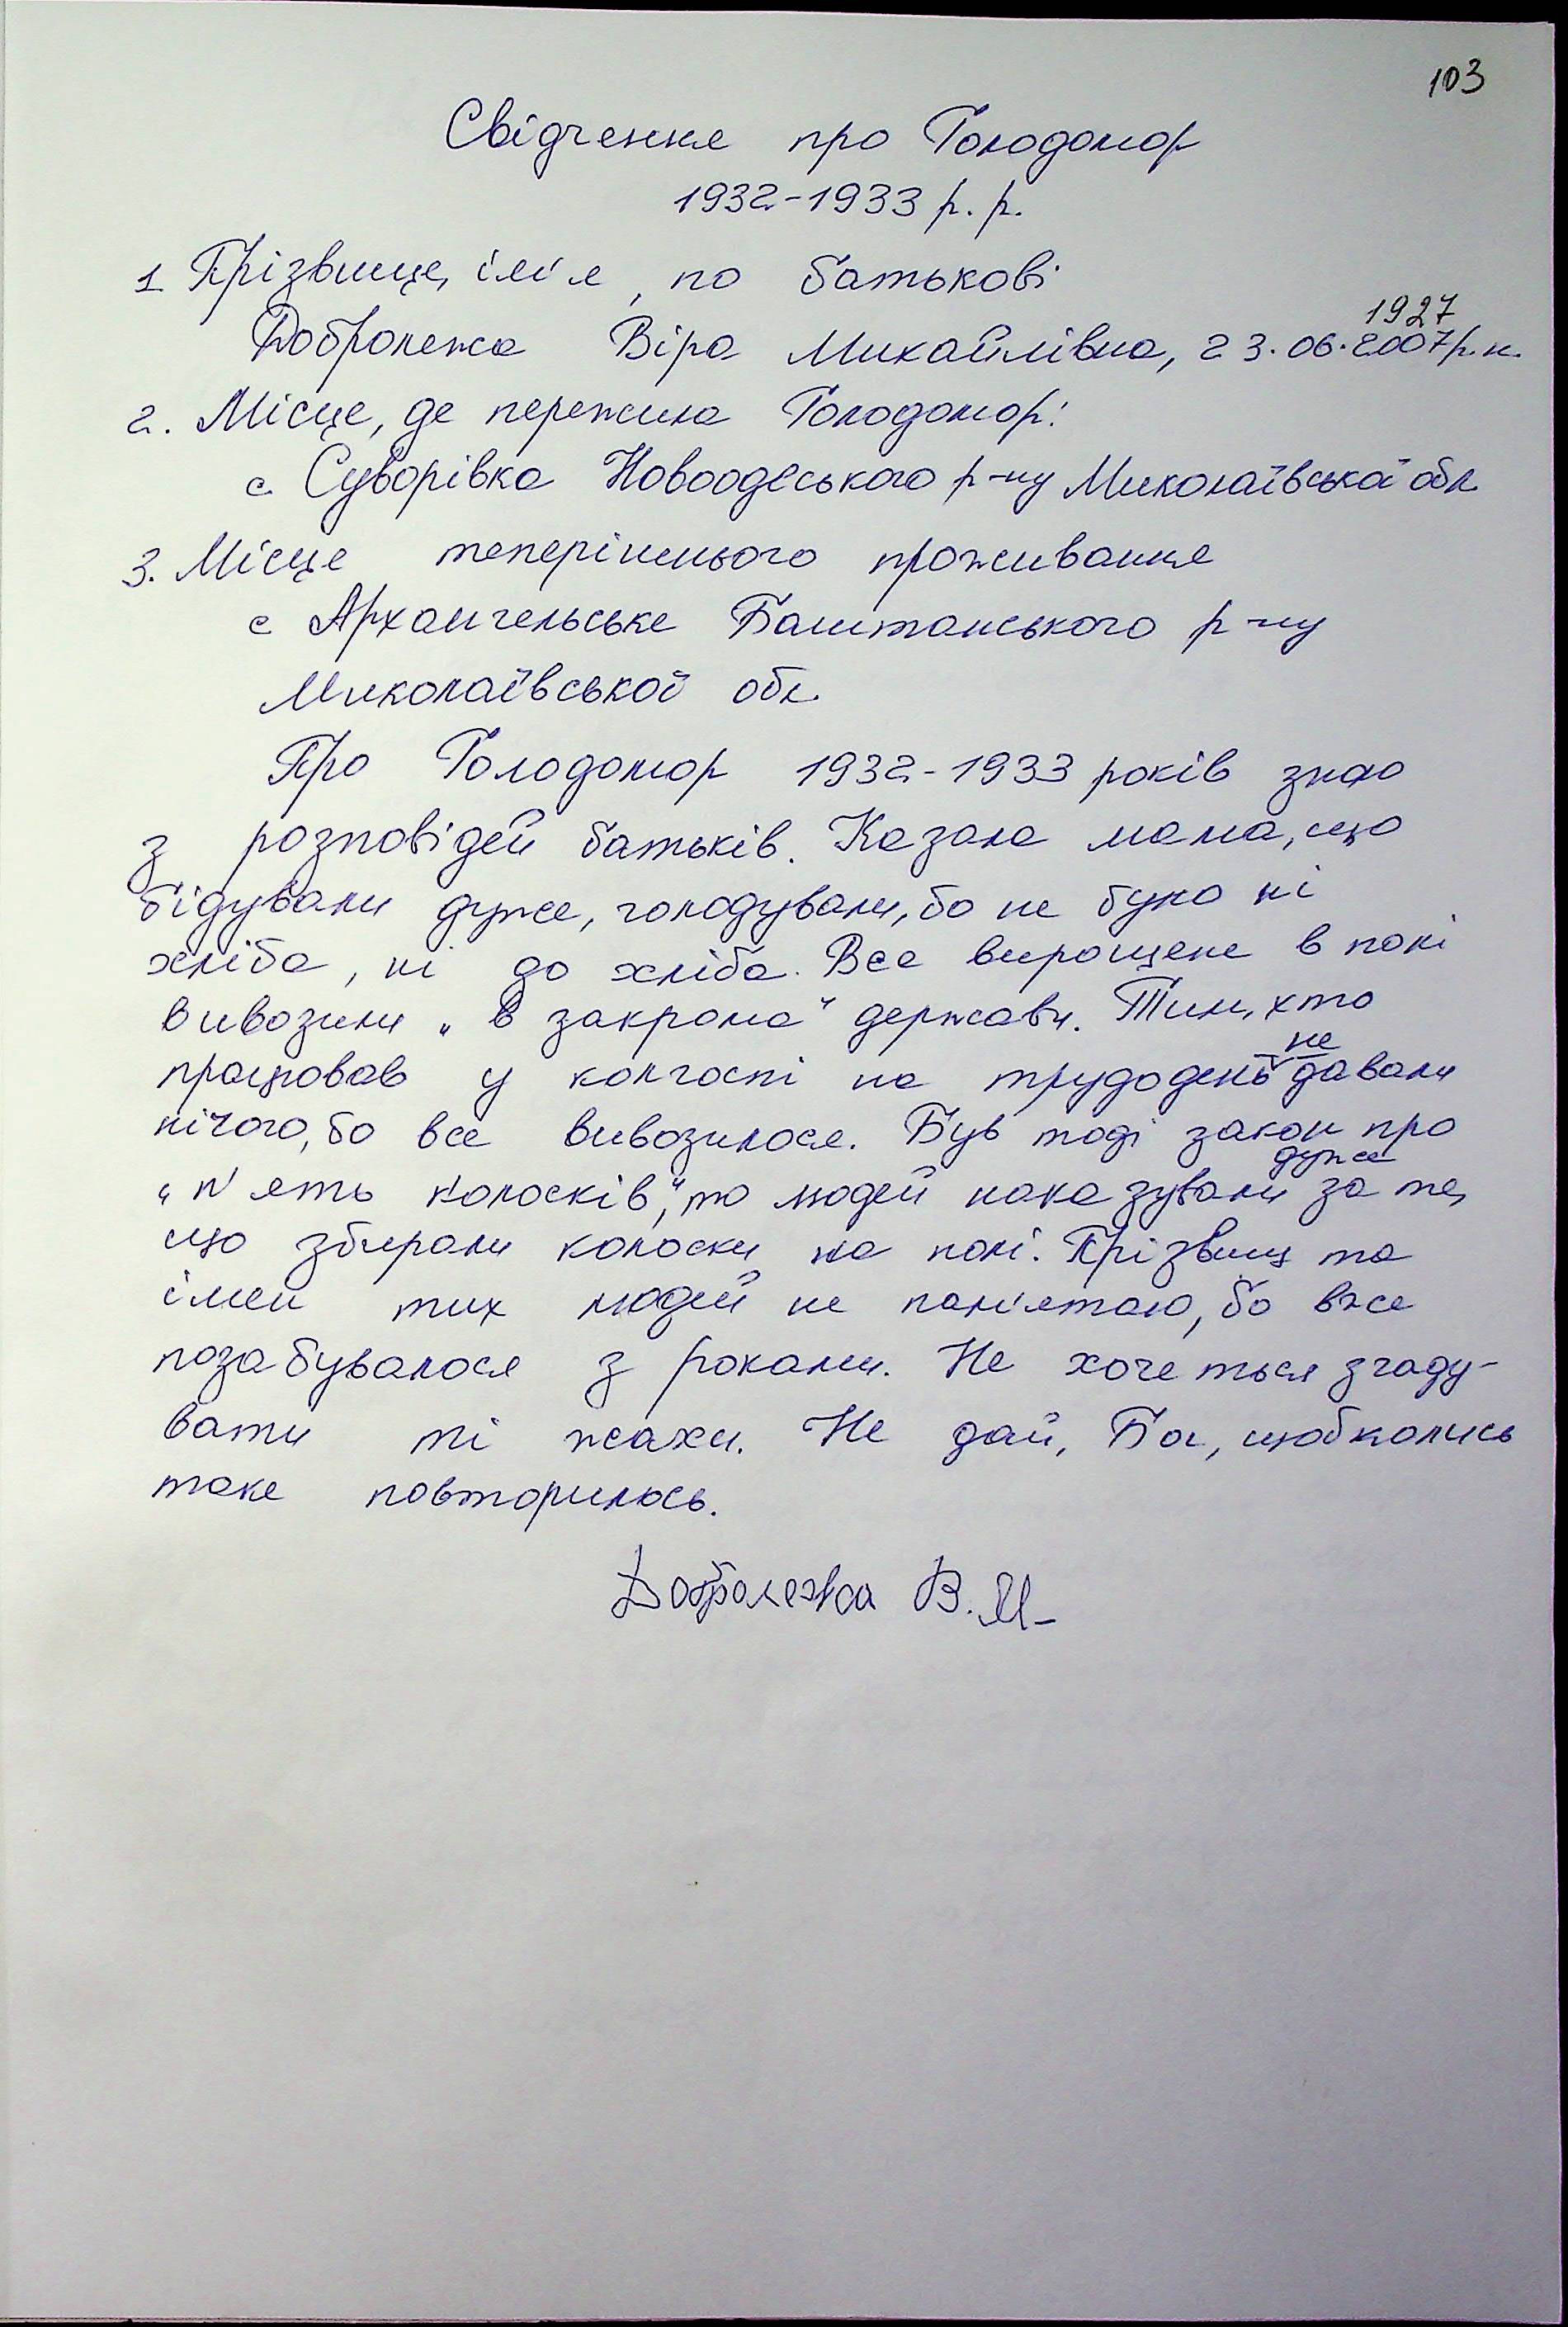 103
Свідчення про Голодомор
1932-1933 р. р.
1 Прізвище, ім'я, по батькові
1927
Добролежа Віра Михайлівна, 23.06.2007р.н.
2. Місце, де пережила Голодомор:
с. Суворівка Новоодеського р-ну Миколаївської обл
3. Місце теперішнього проживання
с Архангельське Баштанського р-ну
Миколаївської обл.
Про Голодомор 1932-1933 років знаю
з розповідей батьків. Казала мама, що
бідували дуже, голодували, бо не було ні
хліба, ні до хліба. Все вирощене в полі
вивозили „в закрома" держави. Тим, хто
не
працював у колгоспі на трудодень давали
нічого, бо все вивозилося. Був тоді закон про
дуже
„п'ять колосків", то людей наказували за те,
що збирали колоски на полі. Прізвищ та
імен тих людей не пам'ятаю, бо вже
позабувалося з роками. Не хочеться згаду-
вати ті жахи. Не дай, Бог, щоб колись
таке повторилось.
Добролежа В. М.